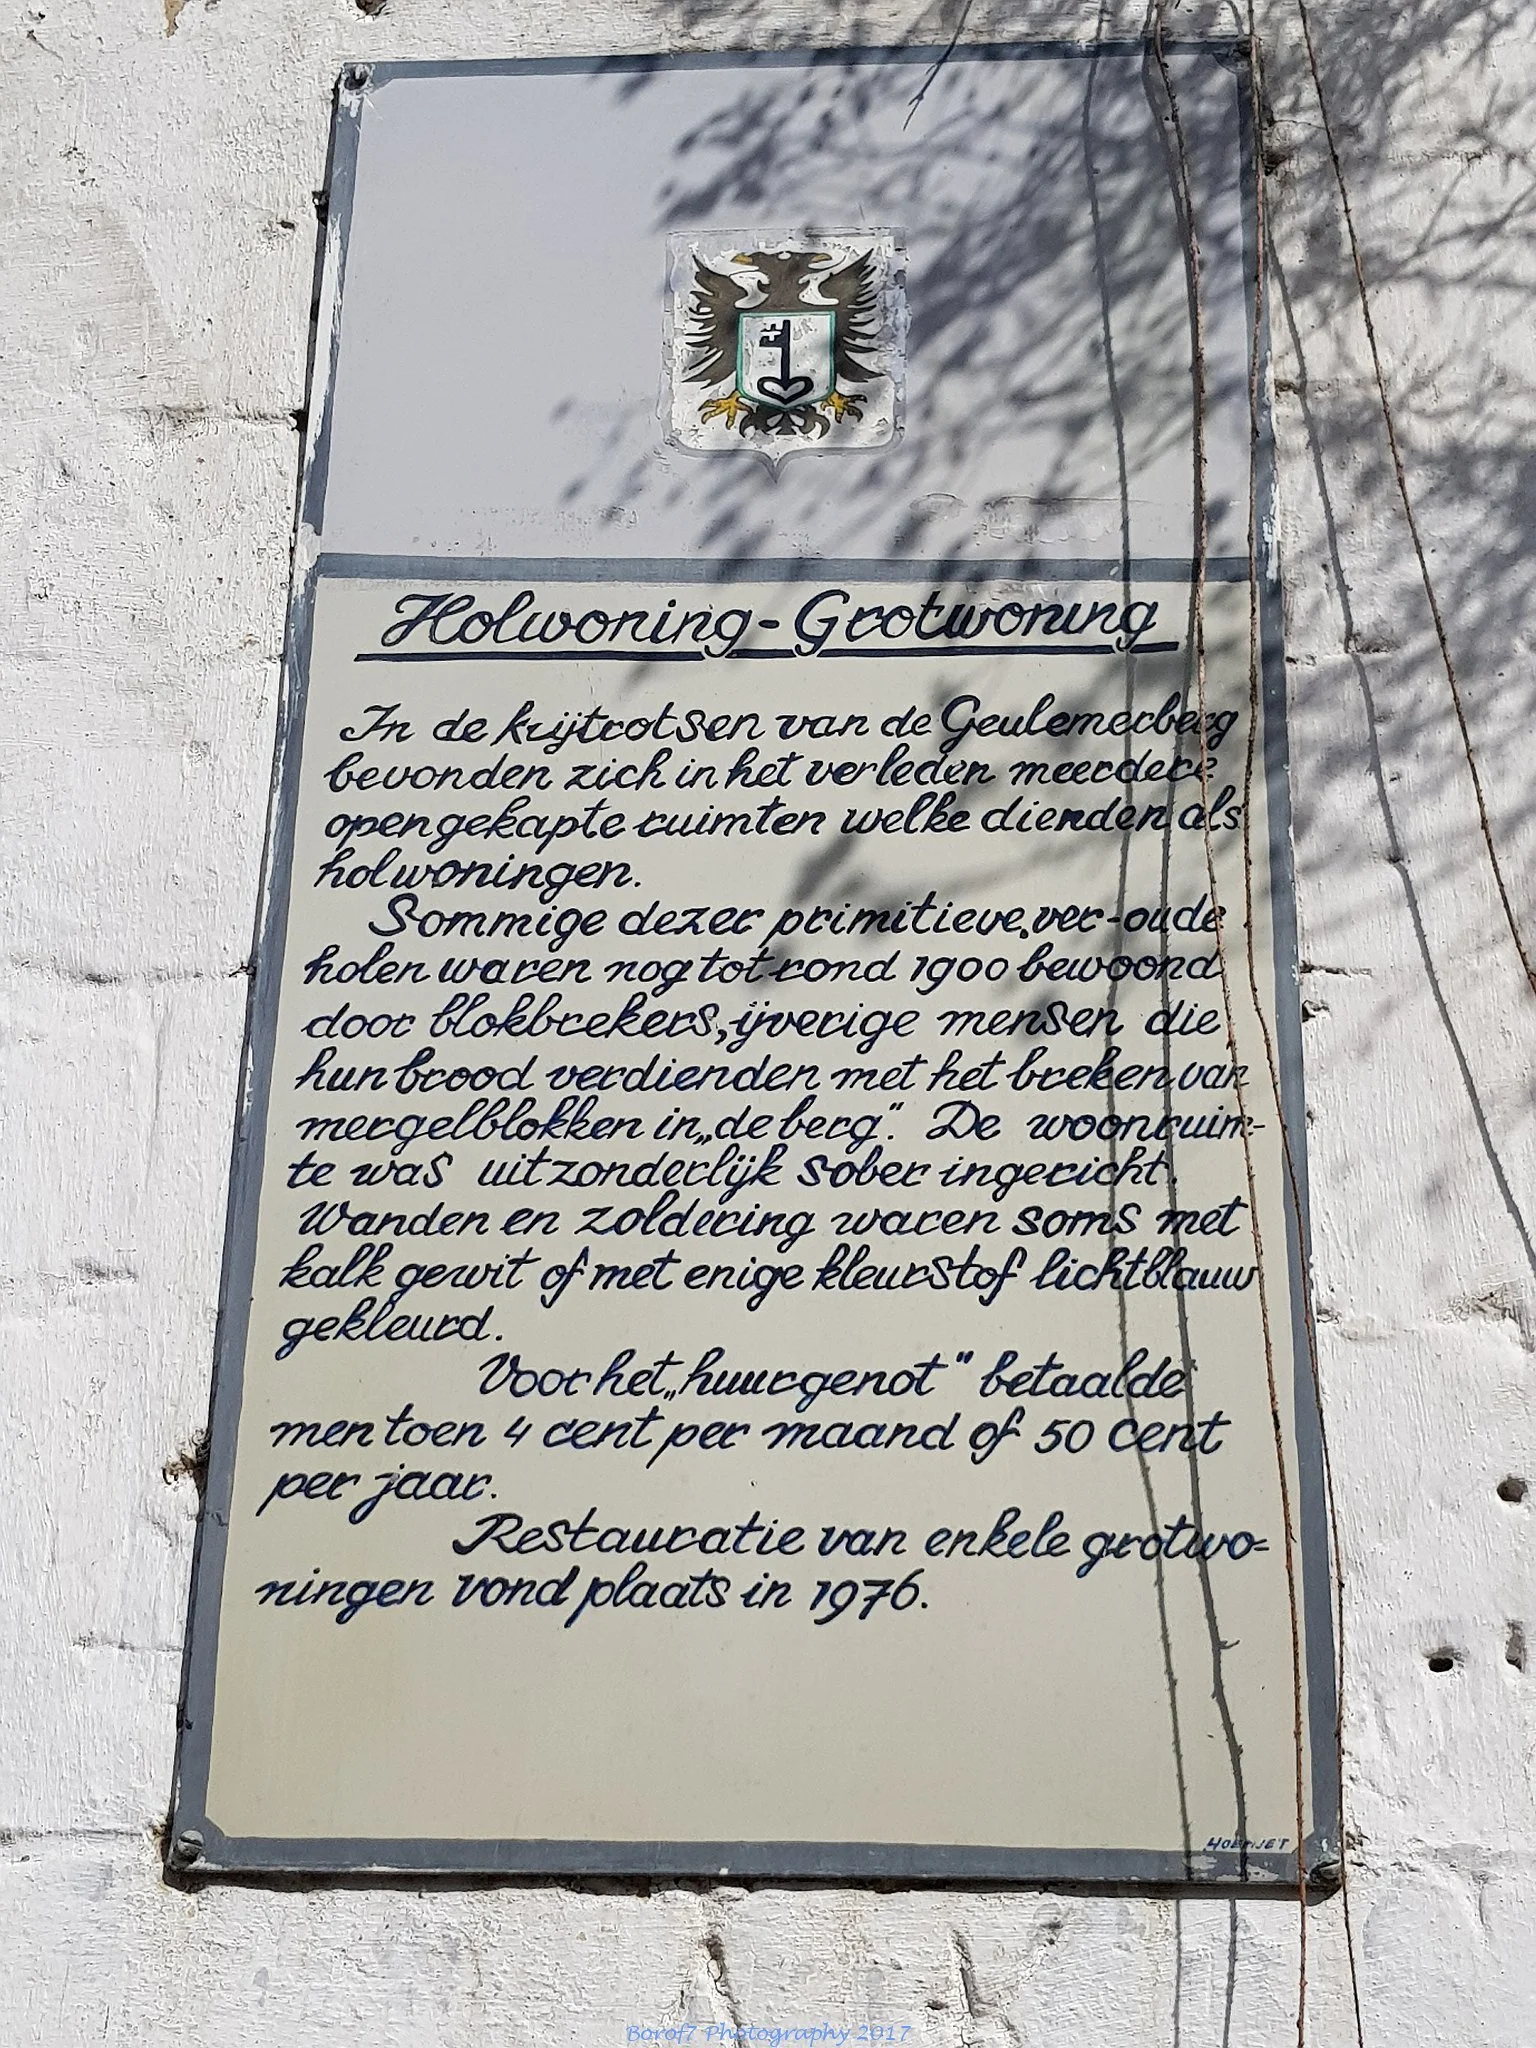 Holwoning-Grotwoning
In de krijtrotsen van de Geulemerberg
bevonden zich in het verleden meerdere
opengekapte ruimten welke dienden als
holwoningen.
Sommige dezer primitieve, ver-oude
holen waren nog tot rond 1900 bewoond
door blokbrekers, ijverige mensen die
hun brood verdienden met het breken van
mergelblokken in „de berg". De woonruim-
te was uitzonderlijk sober ingericht.
Wanden en zoldering waren soms met
kalk gewit of met enige kleurstof lichtblauw
gekleurd.
Voor het „huurgenot" betaalde
men toen 4 cent per maand of 50 cent
per jaar.
Restauratie van enkele grotwo=
ningen vond plaats in 1976.
Borof7 Photography 2017